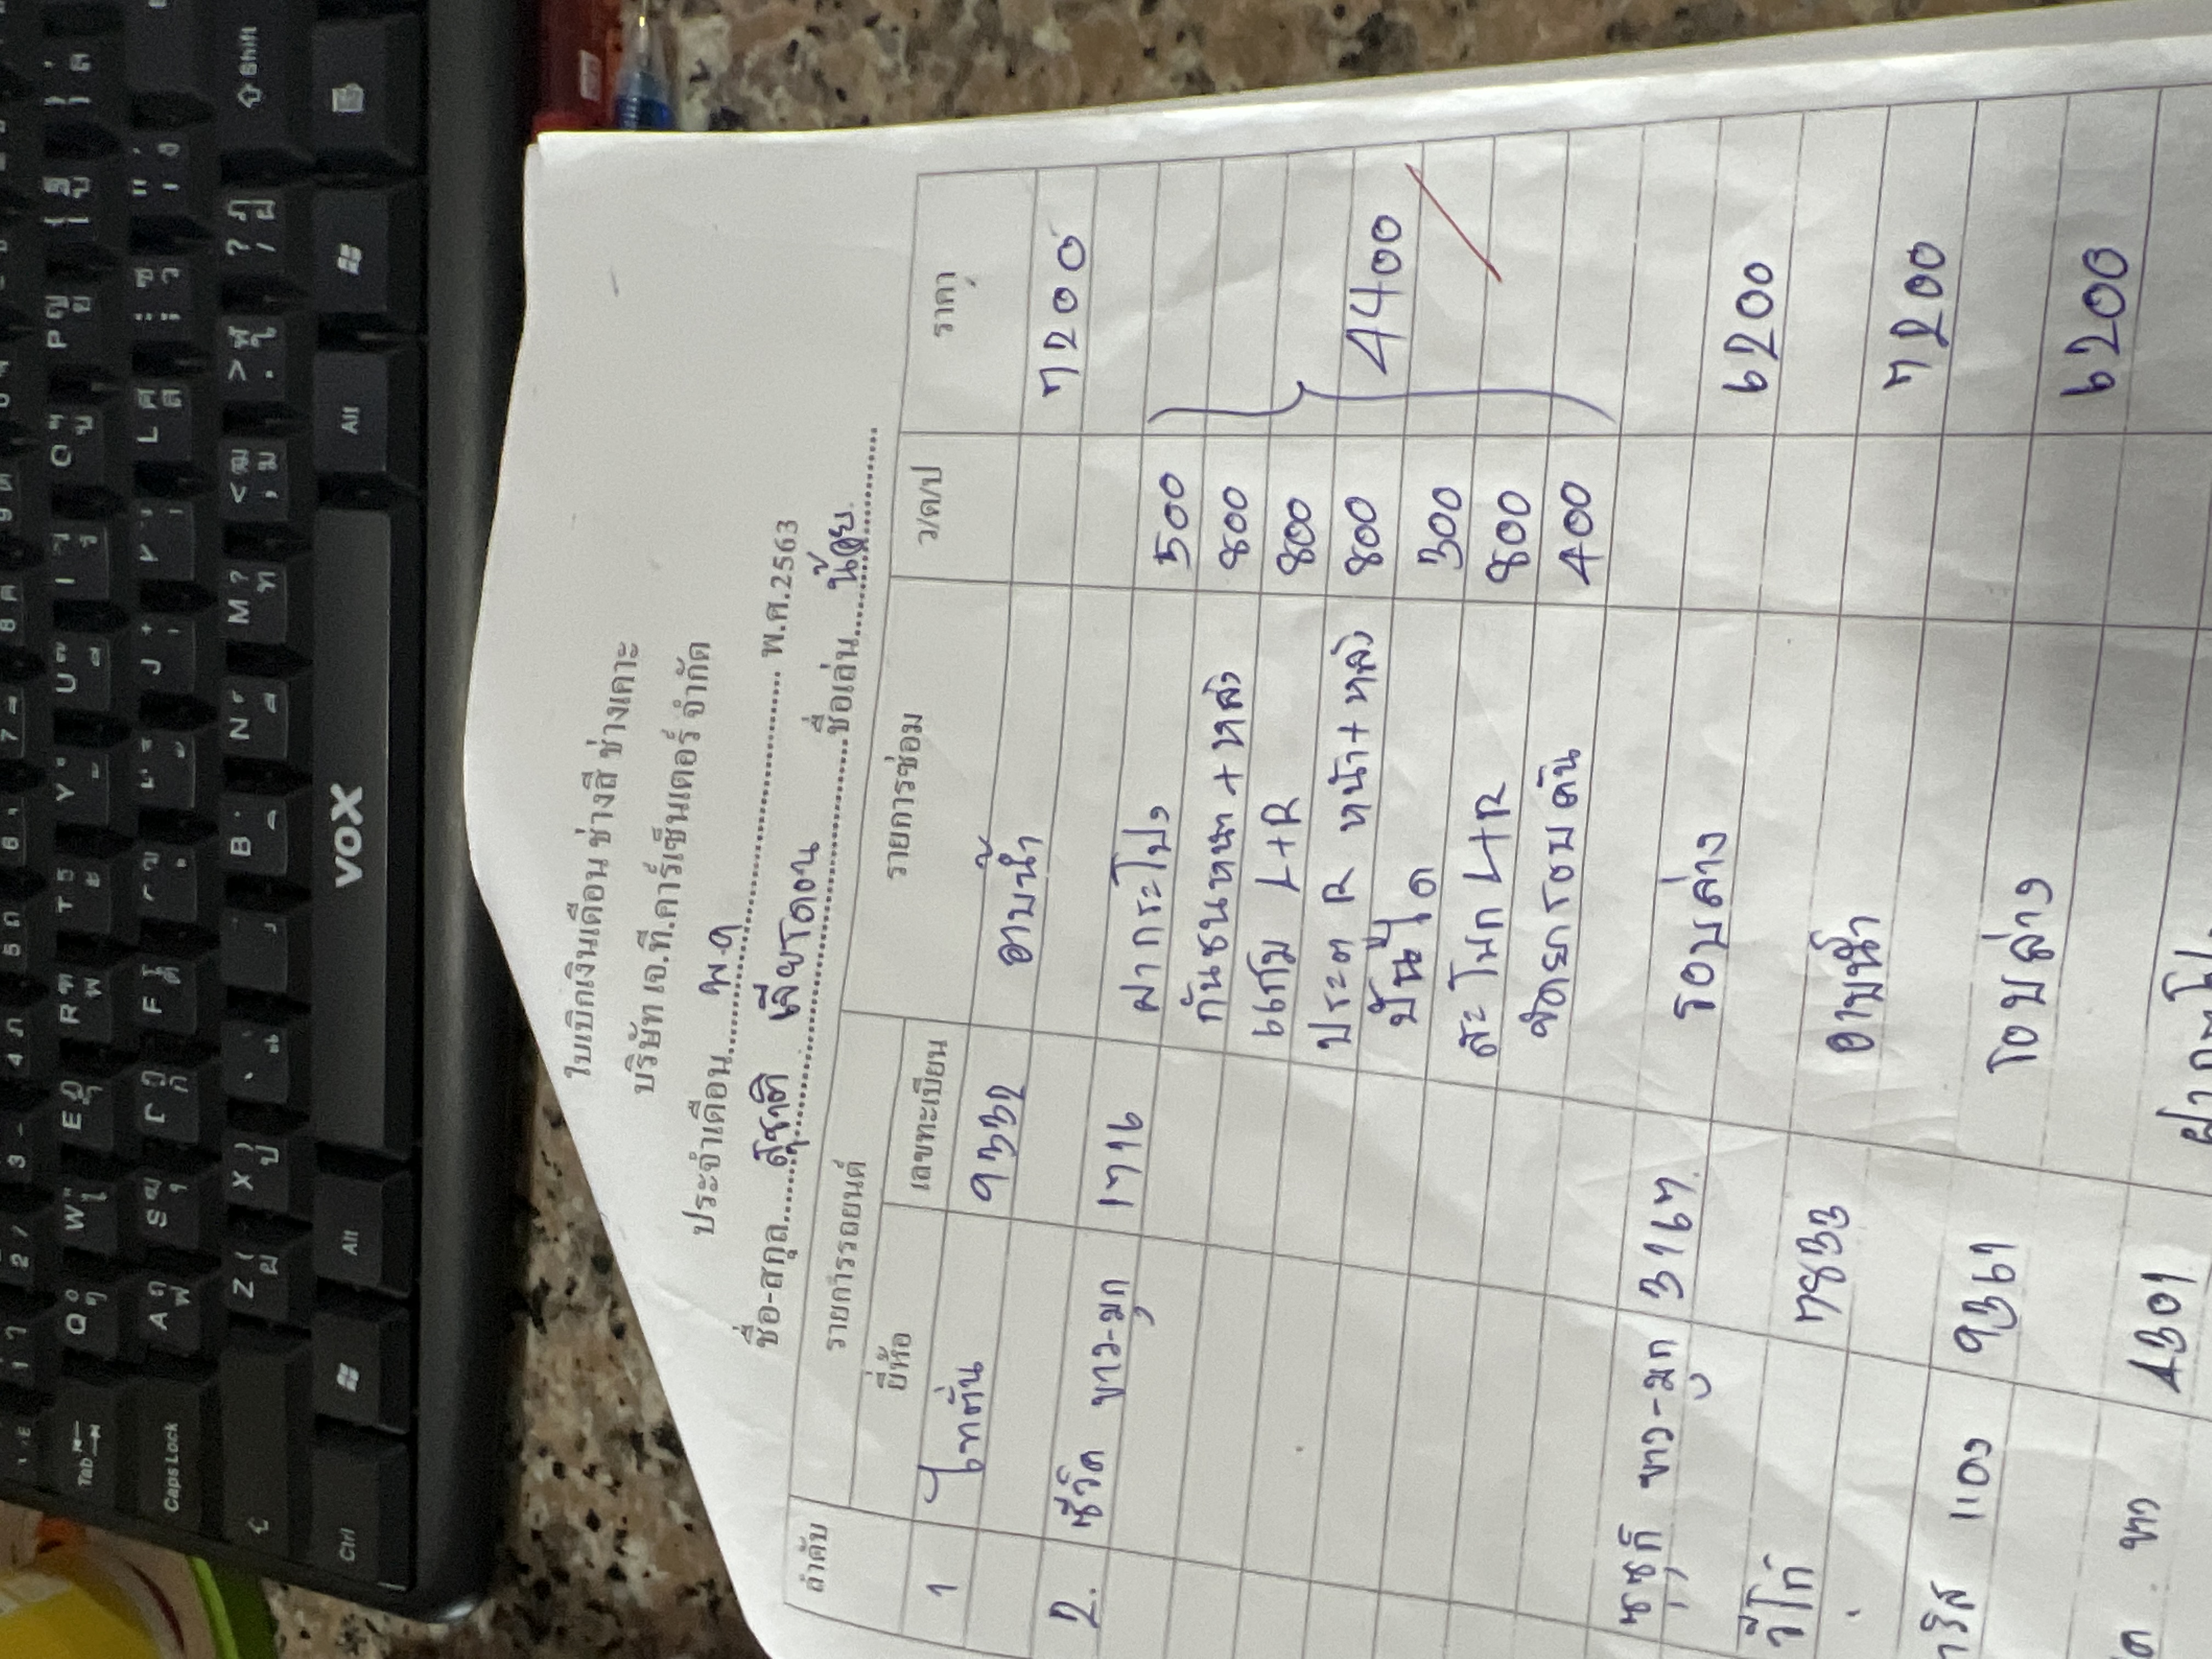 ใบเบิกเงินเดือน ช่างสี ช่างเคาะ
บริษัท เจ.ที.คาร์เซ็นเตอร์ จำกัด
ประจำเดือน......พ.ค............................ พ.ศ.2563
ชื่อ-สกุล......สุชาติ ....................ชื่อเล่น.....น้อย..........
ลำดับ รายการรถยนต์ รายการซ่อม ว/ด/ป ราคา
ยี่ห้อ เลขทะเบียน
1 ไททัน 9332 อาบน้ำ 7200
2. ซีวิค ขาว-มุก 1716
ฝากระโปง 500
กันชนหน้า + หลัง 800
แก้ม L+R 800
ประตู R หน้า+หลัง 800 4400
บันได 300
สะโพก L+R 800
400
ซูซุกิ ขาว-มุก 3167 รอบล่าง 6200
วีโก้ 7833 อาบน้ำ 7200
แดง 9361 รอบล่าง 6200
ขาว 4301
VOX
Tab
Caps Lock
Ctrl
Alt
Alt
Shift
Q W E R T Y U I O P
A S F J L
Z X B N M